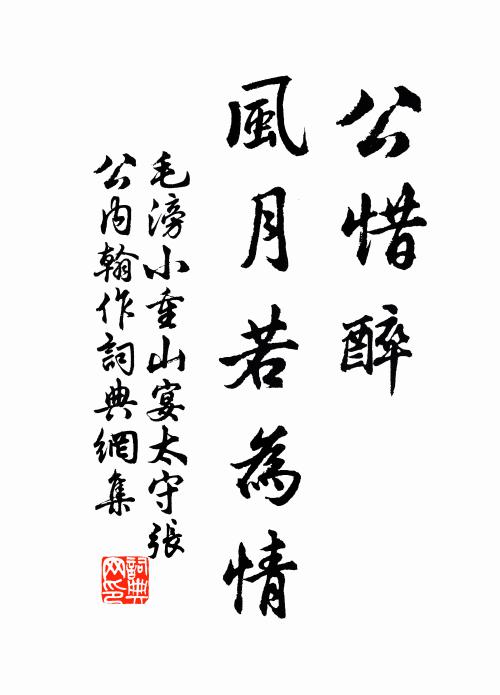 公惜醉
風月若為情
毛滂小重山宴太守張
公內翰作詞典網集
詞典网印